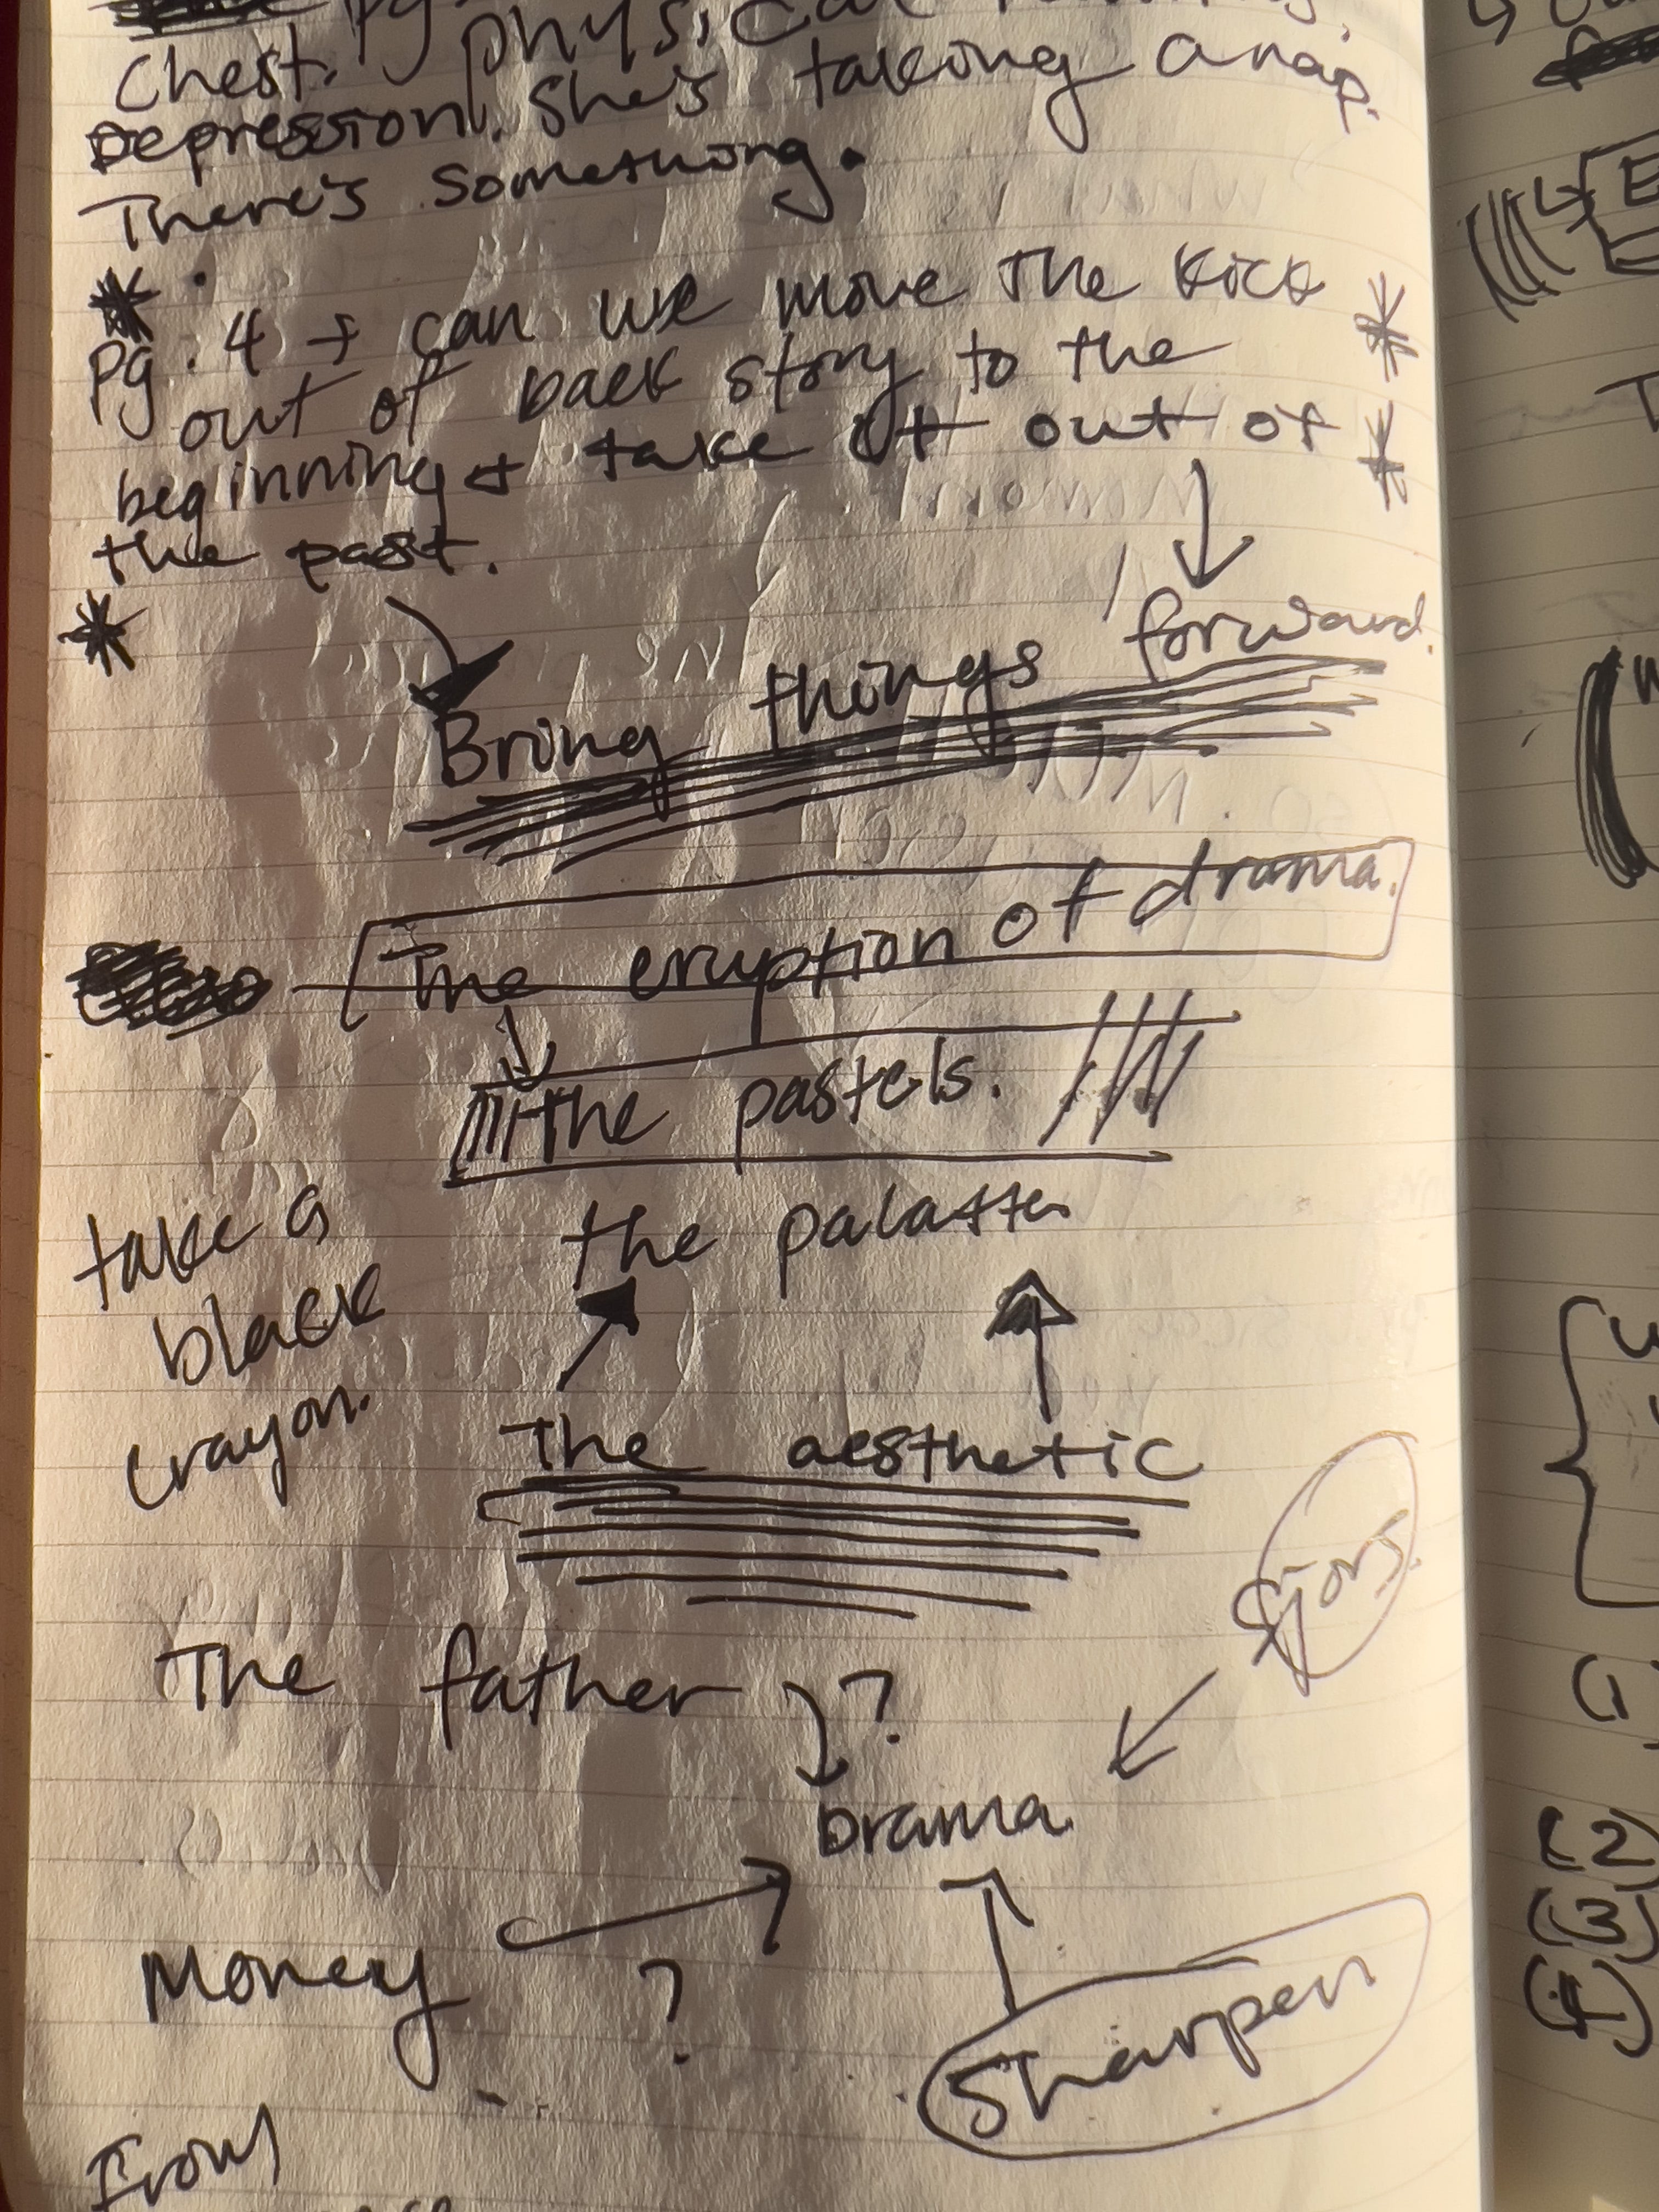 Chest. Pg physical
Depression. She's taking a nap.
There's something.
* pg. 4 → can we move the kick *
out of back story to the
beginning + take it out of *
the past.
*
Bring things forward.
The eruption of drama.
the pastels.
the palatte
take a
black
crayon.
The aesthetic
The father ?
Drama
Money ?
Sharpen
From
(2)
(3)
(4)